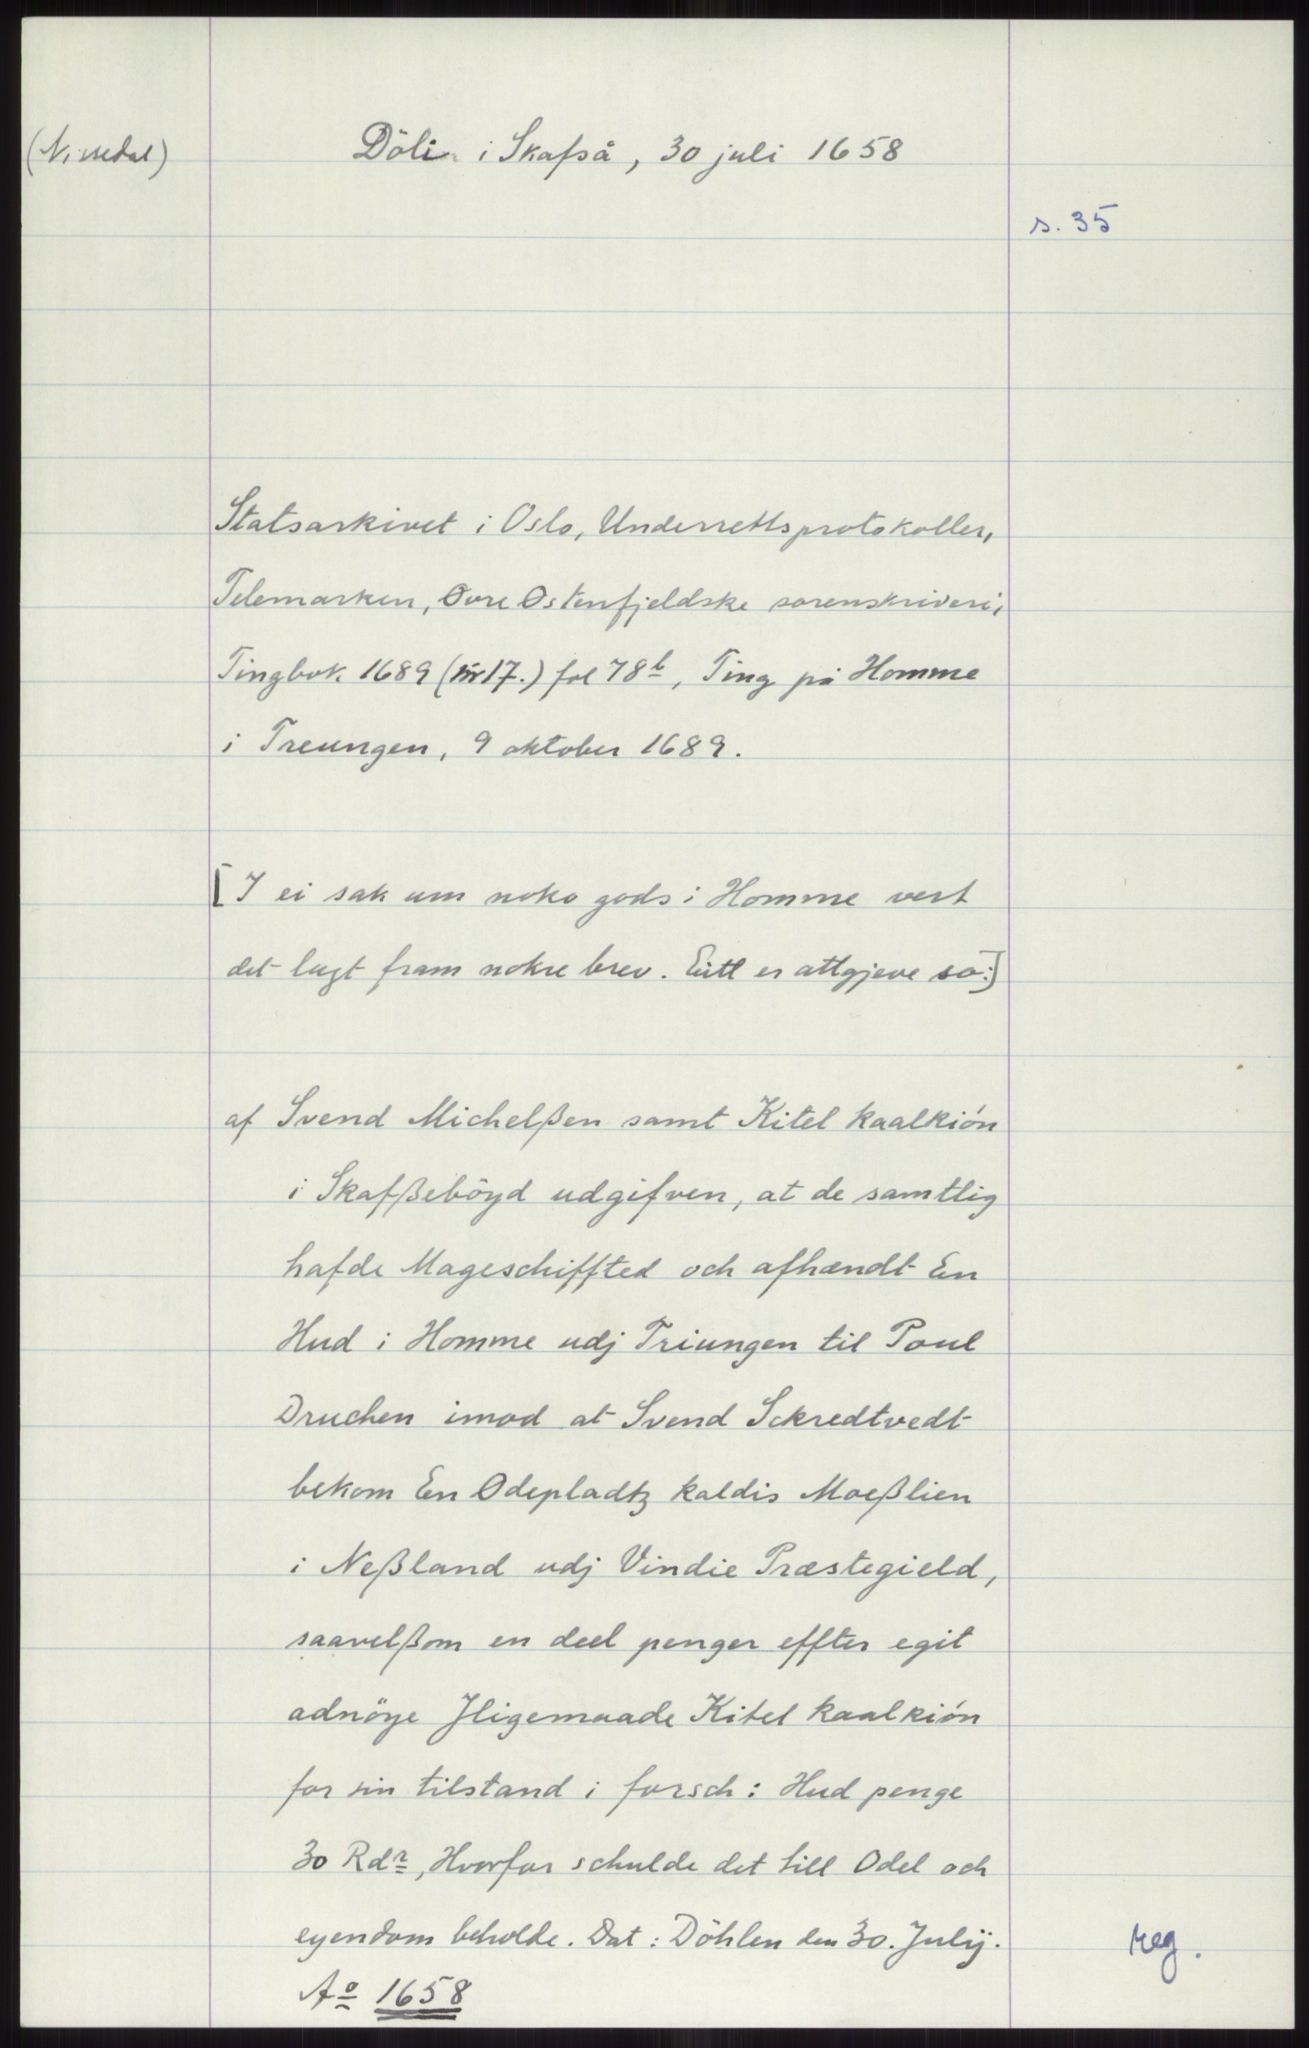 (Nissedal)
Döli i Skafså, 30 juli 1658
s. 35
Statsarkivet i Oslo, Underrettsprotokoller,
Telemarken, Øvre Østenfjeldske sorenskriveri,
Tingbok 1689 (nr 17.) fol 78b, Ting på Homme
i Treungen, 9 oktober 1689.
[I ei sak um noko gods i Homme vert
det lagt fram nokre brev. Eitt er attgjeve so:]
af Svend Michelßen samt Kitel kaalkión
i Skafßeböyd udgifven, at de samtlig
hafde Mageschiffted och afhændt En
Hud i Homme udj Triungen til Poul
Druchen imod at Svend Sckredtvedt
bekom En Ødepladtz kaldis Moeßlien
i Neßland udj Vindie Præstegield,
saavelßom en deel penger effter egit
adnöye Jligemaade Kitel kaalkión
for sin tilstand i forsch: Hud penge
30 Rdr, Hvorfor schulde det till Odel och
eyendom beholde. Dat: Döhlen den 30. Julij.
Ao 1658
reg.